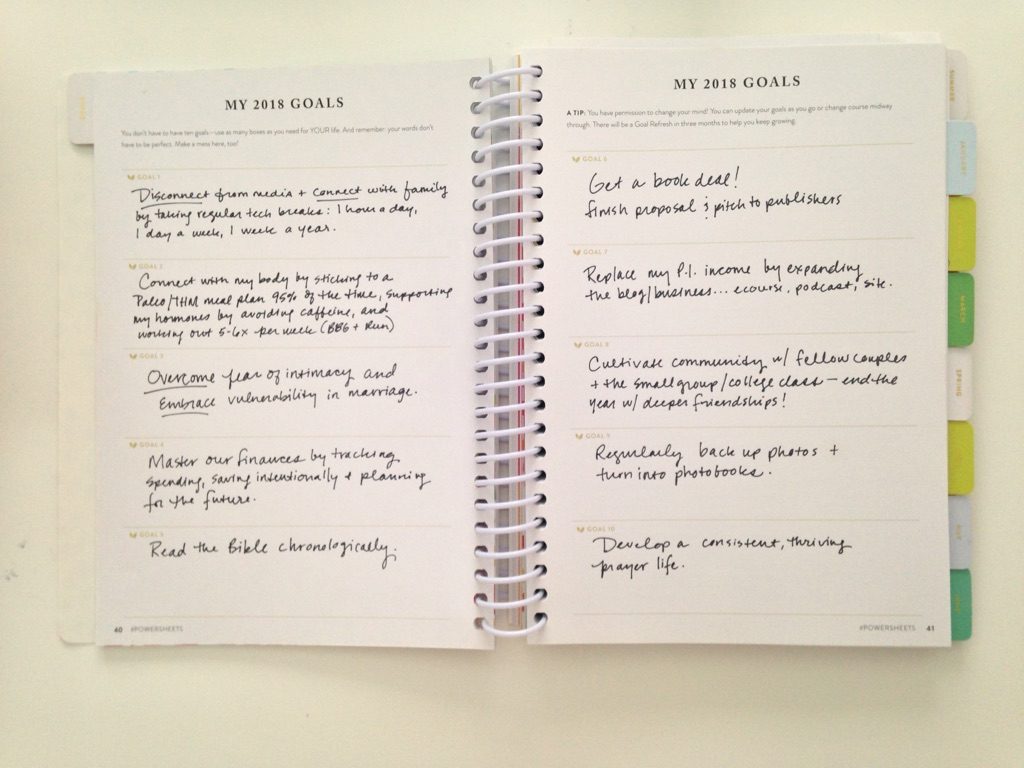 MY 2018 GOALS
You don't have to have ten goals—use as many boxes as you need for YOUR life. And remember: your words don't
have to be perfect. Make a mess here, too!
GOAL 1
Disconnect from media + connect with family
by taking regular tech breaks: 1 hour a day,
1 day a week, 1 week a year.
GOAL 2
Connect with my body by sticking to a
Paleo/THM meal plan 95% of the time, supporting
my hormones by avoiding caffeine, and
working out 5-6x per week (BBG + Run)
GOAL 3
Overcome fear of intimacy and
Embrace vulnerability in marriage.
GOAL 4
Master our finances by tracking
spending, saving intentionally + planning
for the future.
GOAL 5
Read the Bible chronologically.
40 #POWERSHEETS
MY 2018 GOALS
A TIP: You have permission to change your mind! You can update your goals as you go or change course midway
through. There will be a Goal Refresh in three months to help you keep growing.
GOAL 6
Get a book deal!
finish proposal & pitch to publishers
GOAL 7
Replace my P.I. income by expanding
the blog/business... ecourse, podcast, site.
GOAL 8
Cultivate community w/ fellow couples
+ the small group/college class — end the
year w/ deeper friendships!
GOAL 9
Regularly back up photos +
turn into photobooks.
GOAL 10
Develop a consistent, thriving
prayer life.
#POWERSHEETS 41
SUMMER
JANUARY
MARCH
SPRING